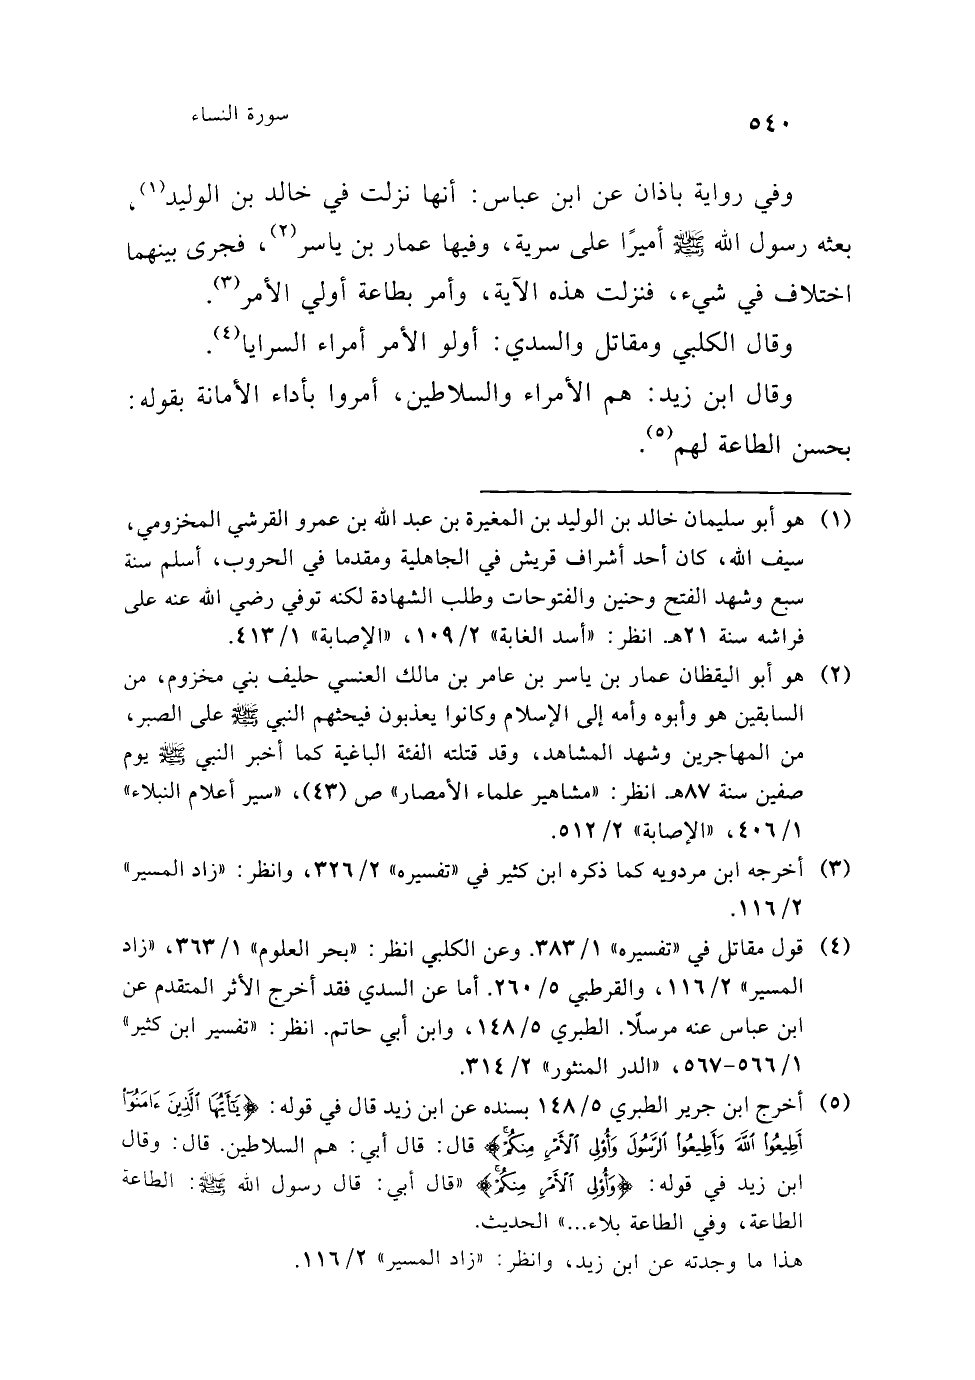 ٥٤٠ سورة النساء
وفي رواية باذان عن ابن عباس: أنها نزلت في خالد بن الوليد(١)،
بعثه رسول الله ﷺ أميرًا على سرية، وفيها عمار بن ياسر(٢)، فجرى بينهما
اختلاف في شيء، فنزلت هذه الآية، وأمر بطاعة أولي الأمر(٣).
وقال الكلبي ومقاتل والسدي: أولو الأمر أمراء السرايا(٤).
وقال ابن زيد: هم الأمراء والسلاطين، أمروا بأداء الأمانة بقوله:
بحسن الطاعة لهم(٥).
(١) هو أبو سليمان خالد بن الوليد بن المغيرة بن عبد الله بن عمرو القرشي المخزومي،
سيف الله، كان أحد أشراف قريش في الجاهلية ومقدما في الحروب، أسلم سنة
سبع وشهد الفتح وحنين والفتوحات وطلب الشهادة لكنه توفي رضي الله عنه على
فراشه سنة ٢١هـ. انظر: «أسد الغابة» ٢/ ١٠٩، «الإصابة» ١/ ٤١٣.
(٢) هو أبو اليقظان عمار بن ياسر بن عامر بن مالك العنسي حليف بني مخزوم، من
السابقين هو وأبوه وأمه إلى الإسلام وكانوا يعذبون فيحثهم النبي ﷺ على الصبر،
من المهاجرين وشهد المشاهد، وقد قتلته الفئة الباغية كما أخبر النبي ﷺ يوم
صفين سنة ٨٧هـ. انظر: «مشاهير علماء الأمصار» ص (٤٣)، «سير أعلام النبلاء»
١/ ٤٠٦، «الإصابة» ٢/ ٥١٢.
(٣) أخرجه ابن مردويه كما ذكره ابن كثير في «تفسيره» ٢/ ٣٢٦، وانظر: «زاد المسير»
٢/ ١١٦.
(٤) قول مقاتل في «تفسيره» ١/ ٣٨٣. وعن الكلبي انظر: «بحر العلوم» ١/ ٣٦٣، «زاد
المسير» ٢/ ١١٦، والقرطبي ٥/ ٢٦٠. أما عن السدي فقد أخرج الأثر المتقدم عن
ابن عباس عنه مرسلًا. الطبري ٥/ ١٤٨، وابن أبي حاتم. انظر: «تفسير ابن كثير»
١/ ٥٦٦-٥٦٧، «الدر المنثور» ٢/ ٣١٤.
(٥) أخرج ابن جرير الطبري ٥/ ١٤٨ بسنده عن ابن زيد قال في قوله: ﴿يَٰٓأَيُّهَا ٱلَّذِينَ ءَامَنُوٓا۟
أَطِيعُوا۟ ٱللَّهَ وَأَطِيعُوا۟ ٱلرَّسُولَ وَأُو۟لِى ٱلْأَمْرِ مِنكُمْ﴾ قال: قال أبي: هم السلاطين. قال: وقال
ابن زيد في قوله: ﴿وَأُو۟لِى ٱلْأَمْرِ مِنكُمْ﴾ «قال أبي: قال رسول الله ﷺ: الطاعة
الطاعة، وفي الطاعة بلاء...» الحديث.
هذا ما وجدته عن ابن زيد، وانظر: «زاد المسير» ٢/ ١١٦.